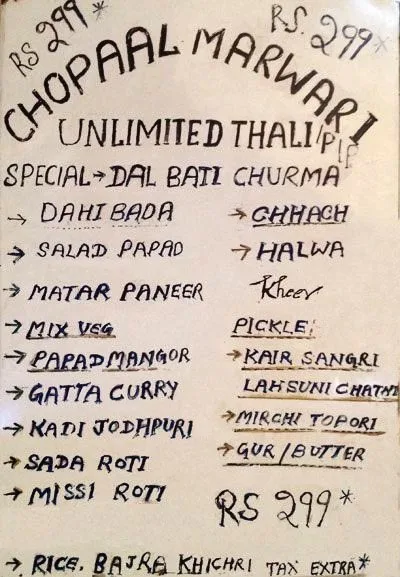 RS 299*
RS. 299*
CHOPAAL MARWARI
UNLIMITED THALI/P/P
SPECIAL→DAL BATI CHURMA
→ DAHI BADA
→ SALAD PAPAD
→ MATAR PANEER
→ MIX VEG
→ PAPAD MANGOR
→ GATTA CURRY
→ KADI JODHPURI
→ SADA ROTI
→ MISSI ROTI
→ CHHACH
→ HALWA
Kheer
PICKLE:
→ KAIR SANGRI
LAHSUNI CHATNI
→ MIRCHI TOPORI
→ GUR/BUTTER
RS 299*
→ RICE, BAJRA KHICHRI TAX EXTRA*